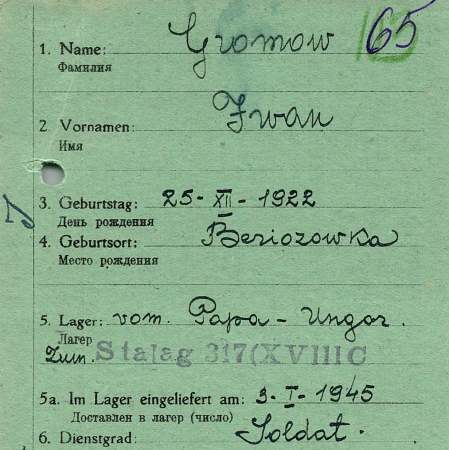 65
1. Name: Gromow
Фамилия
2. Vornamen: Iwan
Имя
3. Geburtstag: 25-XII-1922
День рождения
4. Geburtsort: Beriozowka
Место рождения
5. Lager: vom. Papa - Ungar.
Лагер
Zum. Stalag 317(XVIIIC
5a. Im Lager eingeliefert am: 3-I-1945
Доставлен в лагер (число)
6. Dienstgrad: Soldat.